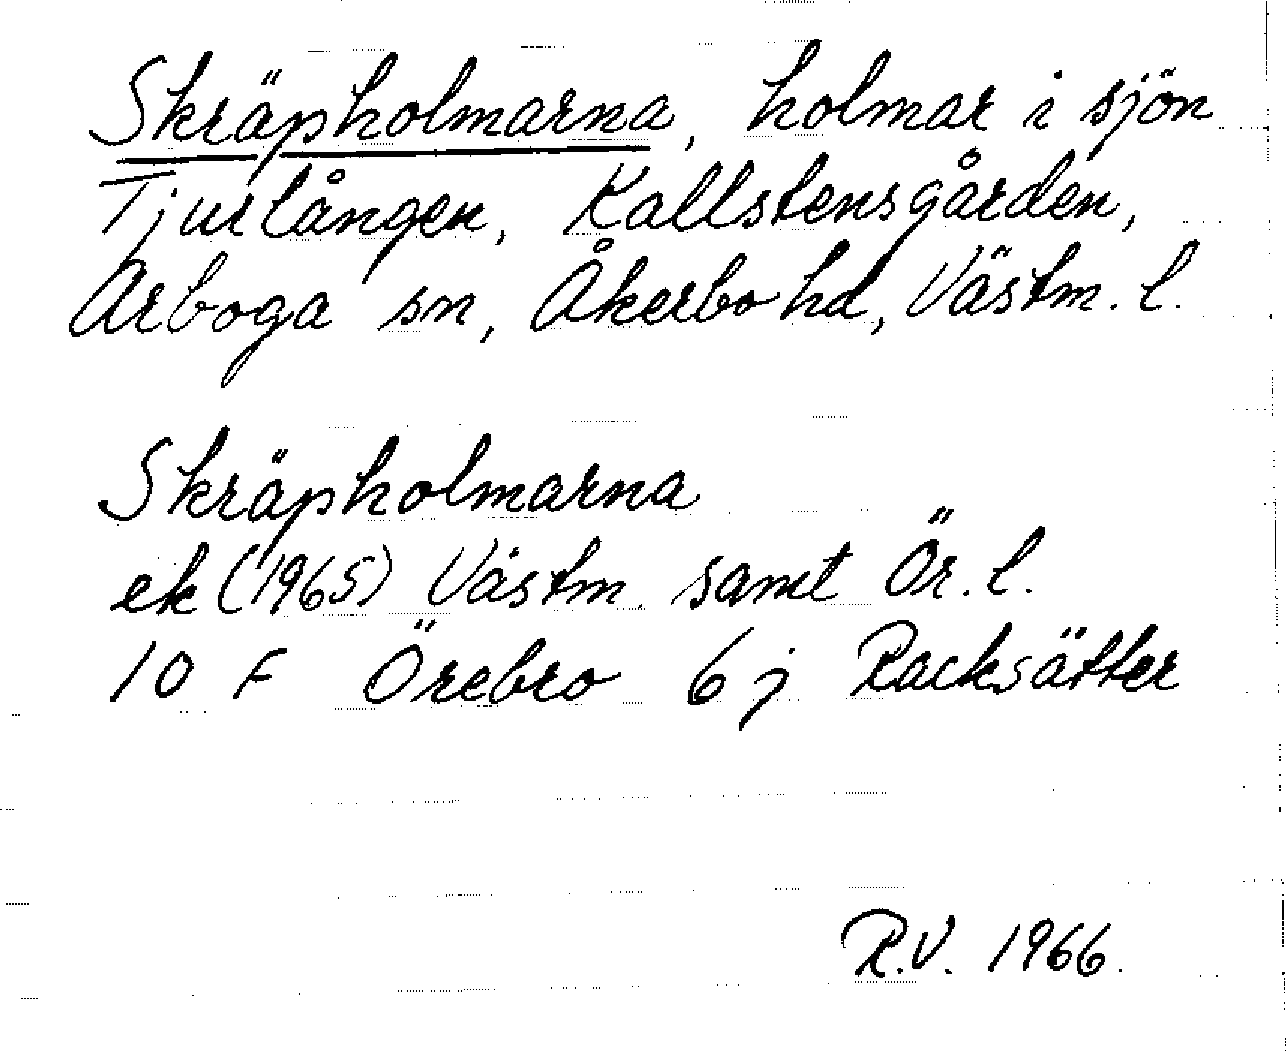 Skräpholmarna, holmar i sjön
Tjurlången, Kallstensgården,
Arboga sn, Åkerbo hd, Västm. l.
Skräpholmarna
ek (1965) Västm. samt Ör. l.
10 F Örebro 6 j Racksätter
R.V. 1966.